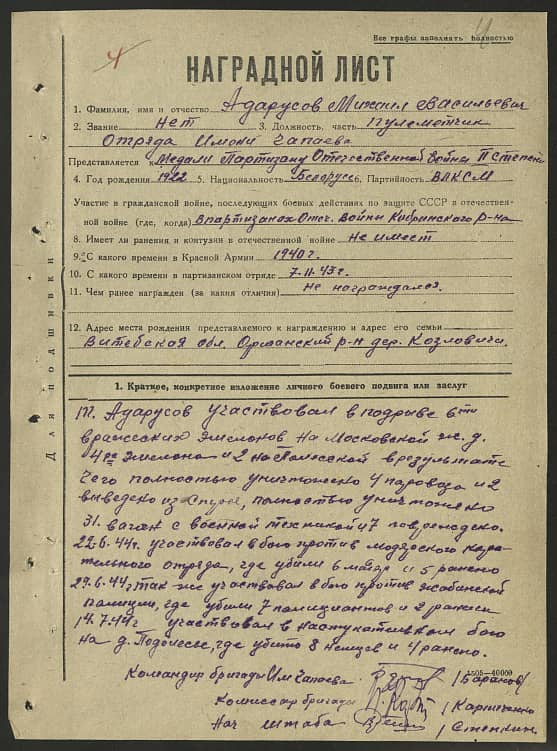 Все графы заполнять полностью
4
НАГРАДНОЙ ЛИСТ
1. Фамилия, имя и отчество Адарусов Михаил Васильевич
2. Звание Нет 3. Должность, часть Пулеметчик
Отряда Имени Чапаева
Представляется к Медали Партизану Отечественной Войны II Степени
4. Год рождения 1922 5. Национальность Белорус 6. Партийность ВЛКСМ
Участие в гражданской войне, последующих боевых действиях по защите СССР в отечествен-
ной войне (где, когда) В партизанах Отеч. Войны Кобринского р-на
8. Имеет ли ранения и контузии в отечественной войне Не имеет
9. С какого времени в Красной Армии 1940 г.
10. С какого времени в партизанском отряде 7.11.43 г.
11. Чем ранее награжден (за какия отличия) Не награждался.
12. Адрес места рождения представляемого к награждению и адрес его семьи
Витебская обл. Оршанский р-н дер. Козловичи.
Для подшивки
1. Краткое, конкретное изложение личного боевого подвига или заслуг
т. Адарусов участвовал в подрыве 6ти
вражеских эшелонов на Московской ж. д.
4ре эшелона и 2 на Полесской в результате
чего полностью уничтожено 4 паровоза и 2
выведено из строя, полностью уничтожено
31. вагон с военной техникой и 7 повреждено.
22.6.44г. участвовал в бою против мадярского кара-
тельного отряда, где убили 6 мадяр и 5 ранено
29.6.44г. так же участвовал в бою против жабинской
полиции, где убили 7 полициантов и 2 ранили
14.7.44г участвовал в наступательном бою
на д. Подлесье, где убито 8 немцев и 4 ранено.
1505—40000
Командир бригады Им Чапаева /Баранов/
Комиссар бригады /Карпченко
Нач штаба /Степкин